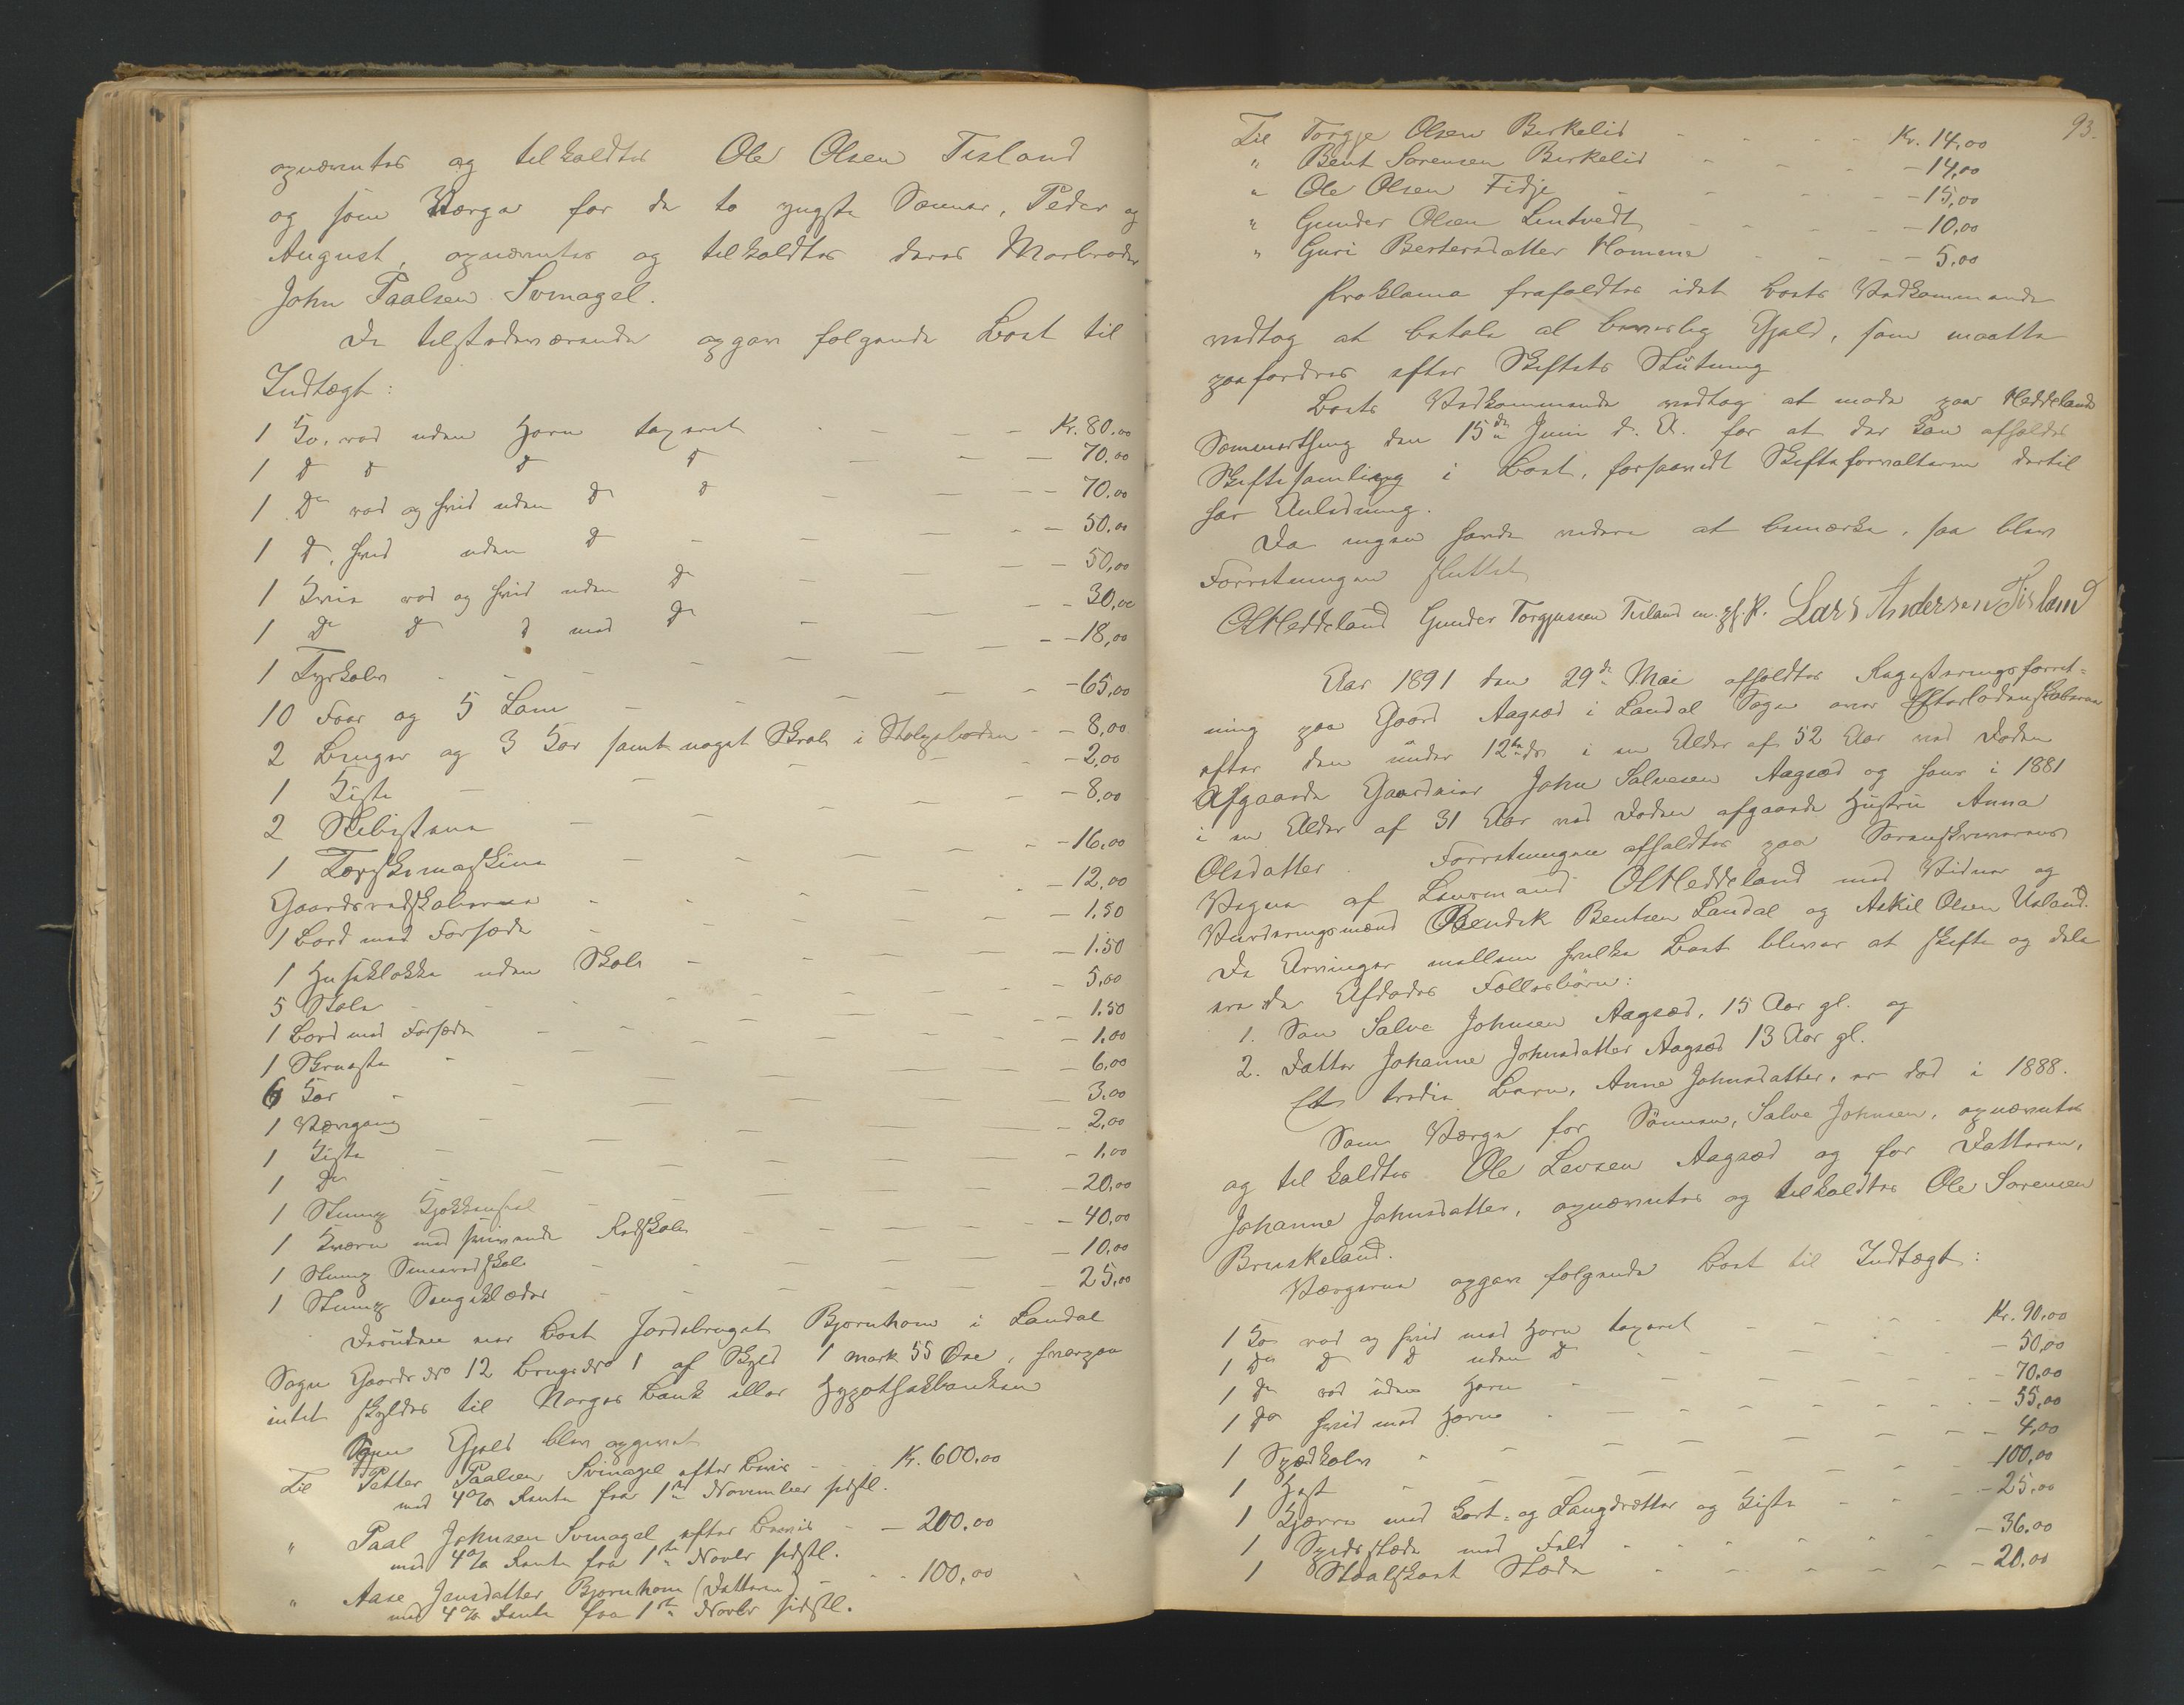 opnævntes og tilkaldtes Ole Olsen Tisland
og som Værge for de to yngste Sønner, Peder og
August, opnævntes og tilkaldtes deres Morbroder
John Paalsen Svinagel.
De tilstedeværende opgav følgende Boet til
Indtægt:
1 Ko, rød uden Horn taxeret - - - Kr. 80.00
1 do do do do - - - 70.00
1 do rød og hvid uden do do - - - 70.00
1 do, hvid uden do - - - 50.00
1 Kvie rød og hvid uden do - - - 50,00
1 do do do med do - - - 30,00
1 Tyrkalv - - - 18,00
10 Faar og 5 Lam - - - 65,00
2 Bringer og 3 Kar samt noget Skrab i Stolpeboden - 8,00
1 Kiste - - - 2,00
2 - - - 8,00
1 Tærskemaskine - - - 16,00
Gaardsredskaberne - - - 12,00
1 Bord med Forsæde - - - 1,50
1 Huseklokke uden - - - 1.50
5 Stole - - - 5,00
1 Bord med Forsæde - - - 1.50
1 - - - 1,00
6 Kar - - - 6,00
1 Vævgang - - - 3.00
1 Kiste - - - 2,00
1 do - - - 1,00
1 Stump - - - 20,00
1 Kværn med Redskab - - - 40,00
1 Stump Smieredskab - - - 10,00
1 Stump Sengeklæder - - - 25,00
Desuden eier Boet Jordebruget Bjørnhom i Laudal
Sogn Gaards No 12 Brugs No 1 af Skyld 1 Mark 55 Øre, hvorpaa
intet skyldes til Norges Bank eller Hypothekbanken
Som Gjæld blev opgivet
Til Petter Paalsen Svinagel efter Bevis - - Kr. 600.00
med 4% Rente fra 1ste November sidstl.
" Paal Johnsen Svinagel efter Bevis - - 200.00
med 4% Rente fra 1ste Novbr sidstl.
" Aase Jensdatter Bjørnhom (Datteren) - - 100,00
med 4% Rente fra 1ste Novbr sidstl.
93.
Til Torgje Olsen Birkelid - - - Kr. 14,00
" Bent Sørensen Birkelid - - - 14,00
" Ole Olsen Fidje - - - 15,00
" Gunder Olsen Lindtvedt - - - 10,00
" Guri Bertersdatter Homme - - - 5.00
Proklama frafaldtes idet Boets Vedkommende
vedtog at betale al bevislig Gjæld, som maatte
paafordres efter Skiftets Slutning
Boets Vedkommende vedtog at møde paa Heddelands
Sommerthing den 15de Juni d. A. for at der kan afholdes
Skiftesamling i Boet, forsaavidt Skifteforvalteren dertil
har Anledning.
Da ingen havde videre at bemærke, saa blev
Forretningen sluttet
O. Heddeland Gunder Torgjussen Tisland m. p. P. Lars Andersen Tisland
Aar 1891 den 29de Mai afholdtes Registreringsforret-
ning paa Gaard Aagsæd i Laudal Sogn over Efterladenskaberne
efter den under 12te ds i en Alder af 52 Aar ved Døden
Afgaaede Gaardeier John Salvesen Aagsæd og hans i 1881
i en Alder af 31 Aar ved Døden afgaaede Hustru Anna
Olsdatter. Forretningen afholdtes paa Sorenskriverens
Vegne af Lensmand O. Heddeland med Vidner og
Vurderingsmænd Bendik Bentsen Laudal og Askil Olsen Usland.
De Arvinger mellem hvilke Boet bliver at skifte og dele
ere de Afdødes Fællesbørn:
1. Søn Salve Johnsen Aagsæd, 15 Aar gl. og
2. Datter Johanne Johnsdatter Aagsæd 13 Aar gl.
Et tredie Barn, Anne Johnsdatter, er død i 1888.
Som Værge for Sønnen, Salve Johnsen, opnævntes
og tilkaldtes Ole Levsen Aagsæd og for Datteren,
Johanne Johnsdatter, opnævntes og tilkaldtes Ole Sørensen
Bruskeland.
Værgerne opgav følgende Boet til Indtægt:
1 Ko rød og hvid med Horn taxeret - - - Kr. 90.00
1 do do do uden do - - - 50,00
1 do rød uden Horn - - - 70,00
1 do hvid med Horn - - - 55,00
1 Spædkalv - - - 4,00
1 Hest - - - 100,00
1 Kjærre med Kort- og Langdrætter og Kiste - - - 25,00
1 Spidsslæde med Feld - - - 36.00
1 Slæde - - - 20.00